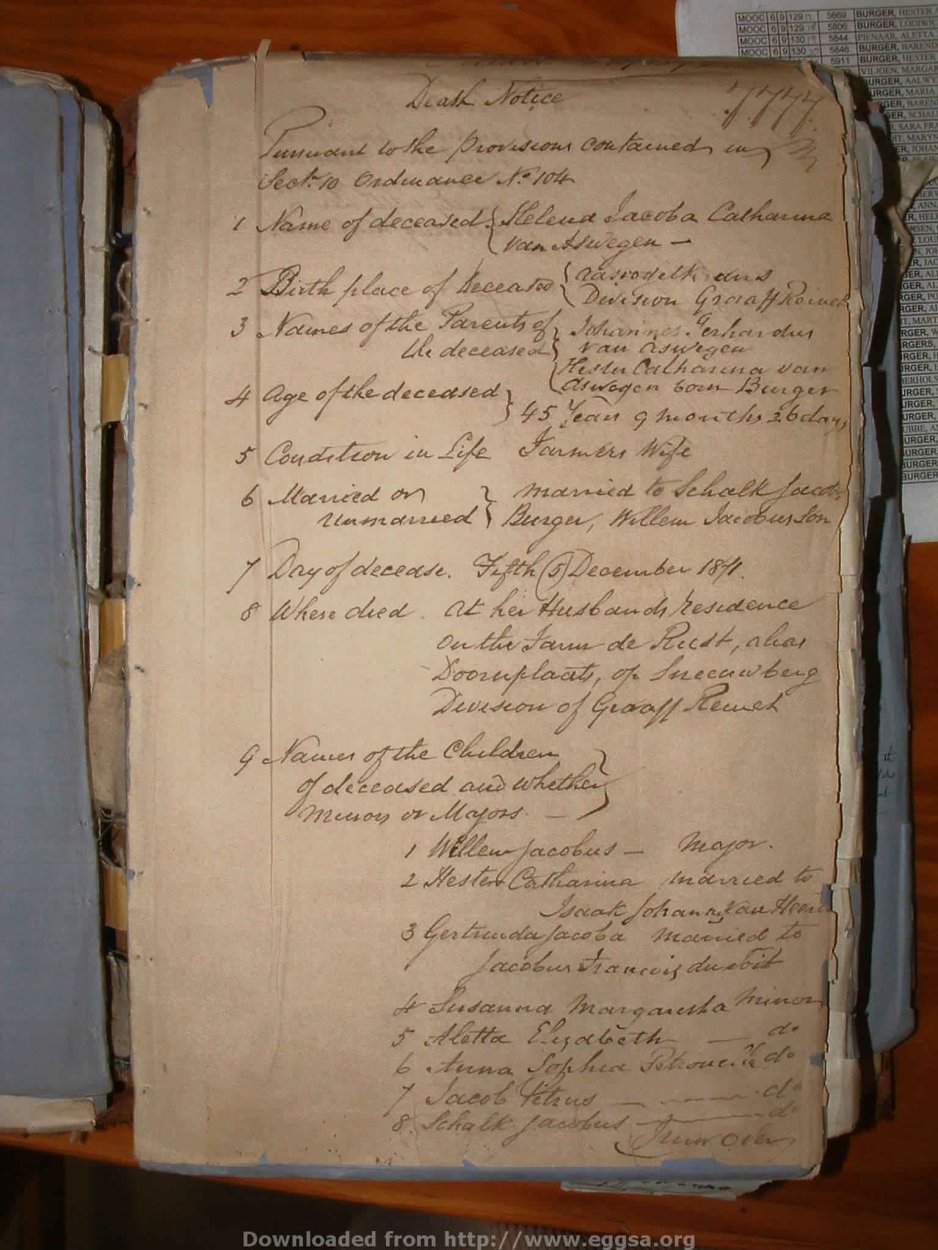 MOOC 6 9 129 5669 BURGER, HESTER
MOOC 6 9 129 5806 BURGER, LODIWIC
MOOC 6 9 130 5844 PIENAAR, ALETTA
MOOC 6 9 130 5846 BURGER, BAREND
5911 BURGER, HESTER
VILJOEN, MARGAR
BURGER, AALWY
BURGER, MARIA
Death Notice
7777
Pursuant to the Provisions contained in
Sect. 10 Ordinance No. 104
1 Name of deceased { Helena Jacoba Catharina
van Aswegen —
2 Birth place of Deceased {
Division Graaff Reinet
3 Names of the Parents of } Johannes Gerhardus
the deceased } van Aswegen
Hester Catharina van
Aswegen born Burger
4 Age of the deceased } 45 Years 9 months 26 days
5 Condition in Life Farmers Wife
6 Married or } married to Schalk Jacob
Unmarried } Burger, Willem Jacobus Son
7 Day of decease. Fifth (5) December 1871.
8 Where died. At her Husbands residence
on the Farm de Rust, alias
Doornplaats, of Sneeuwberg
Division of Graaff Reinet
9 Names of the Children
of deceased and whether
minors or Majors —
1 Willem Jacobus — Major.
2 Hester Catharina married to
Isaak Johanns van Heer
3 Gertruida Jacoba married to
Jacobus Francois du Toit
4 Susanna Margaretha Minor
5 Aletta Elizabeth — do
6 Anna Sophia do
7 Jacob Petrus — do
8 Schalk Jacobus — do
Turn Over
Downloaded from http://www.eggsa.org